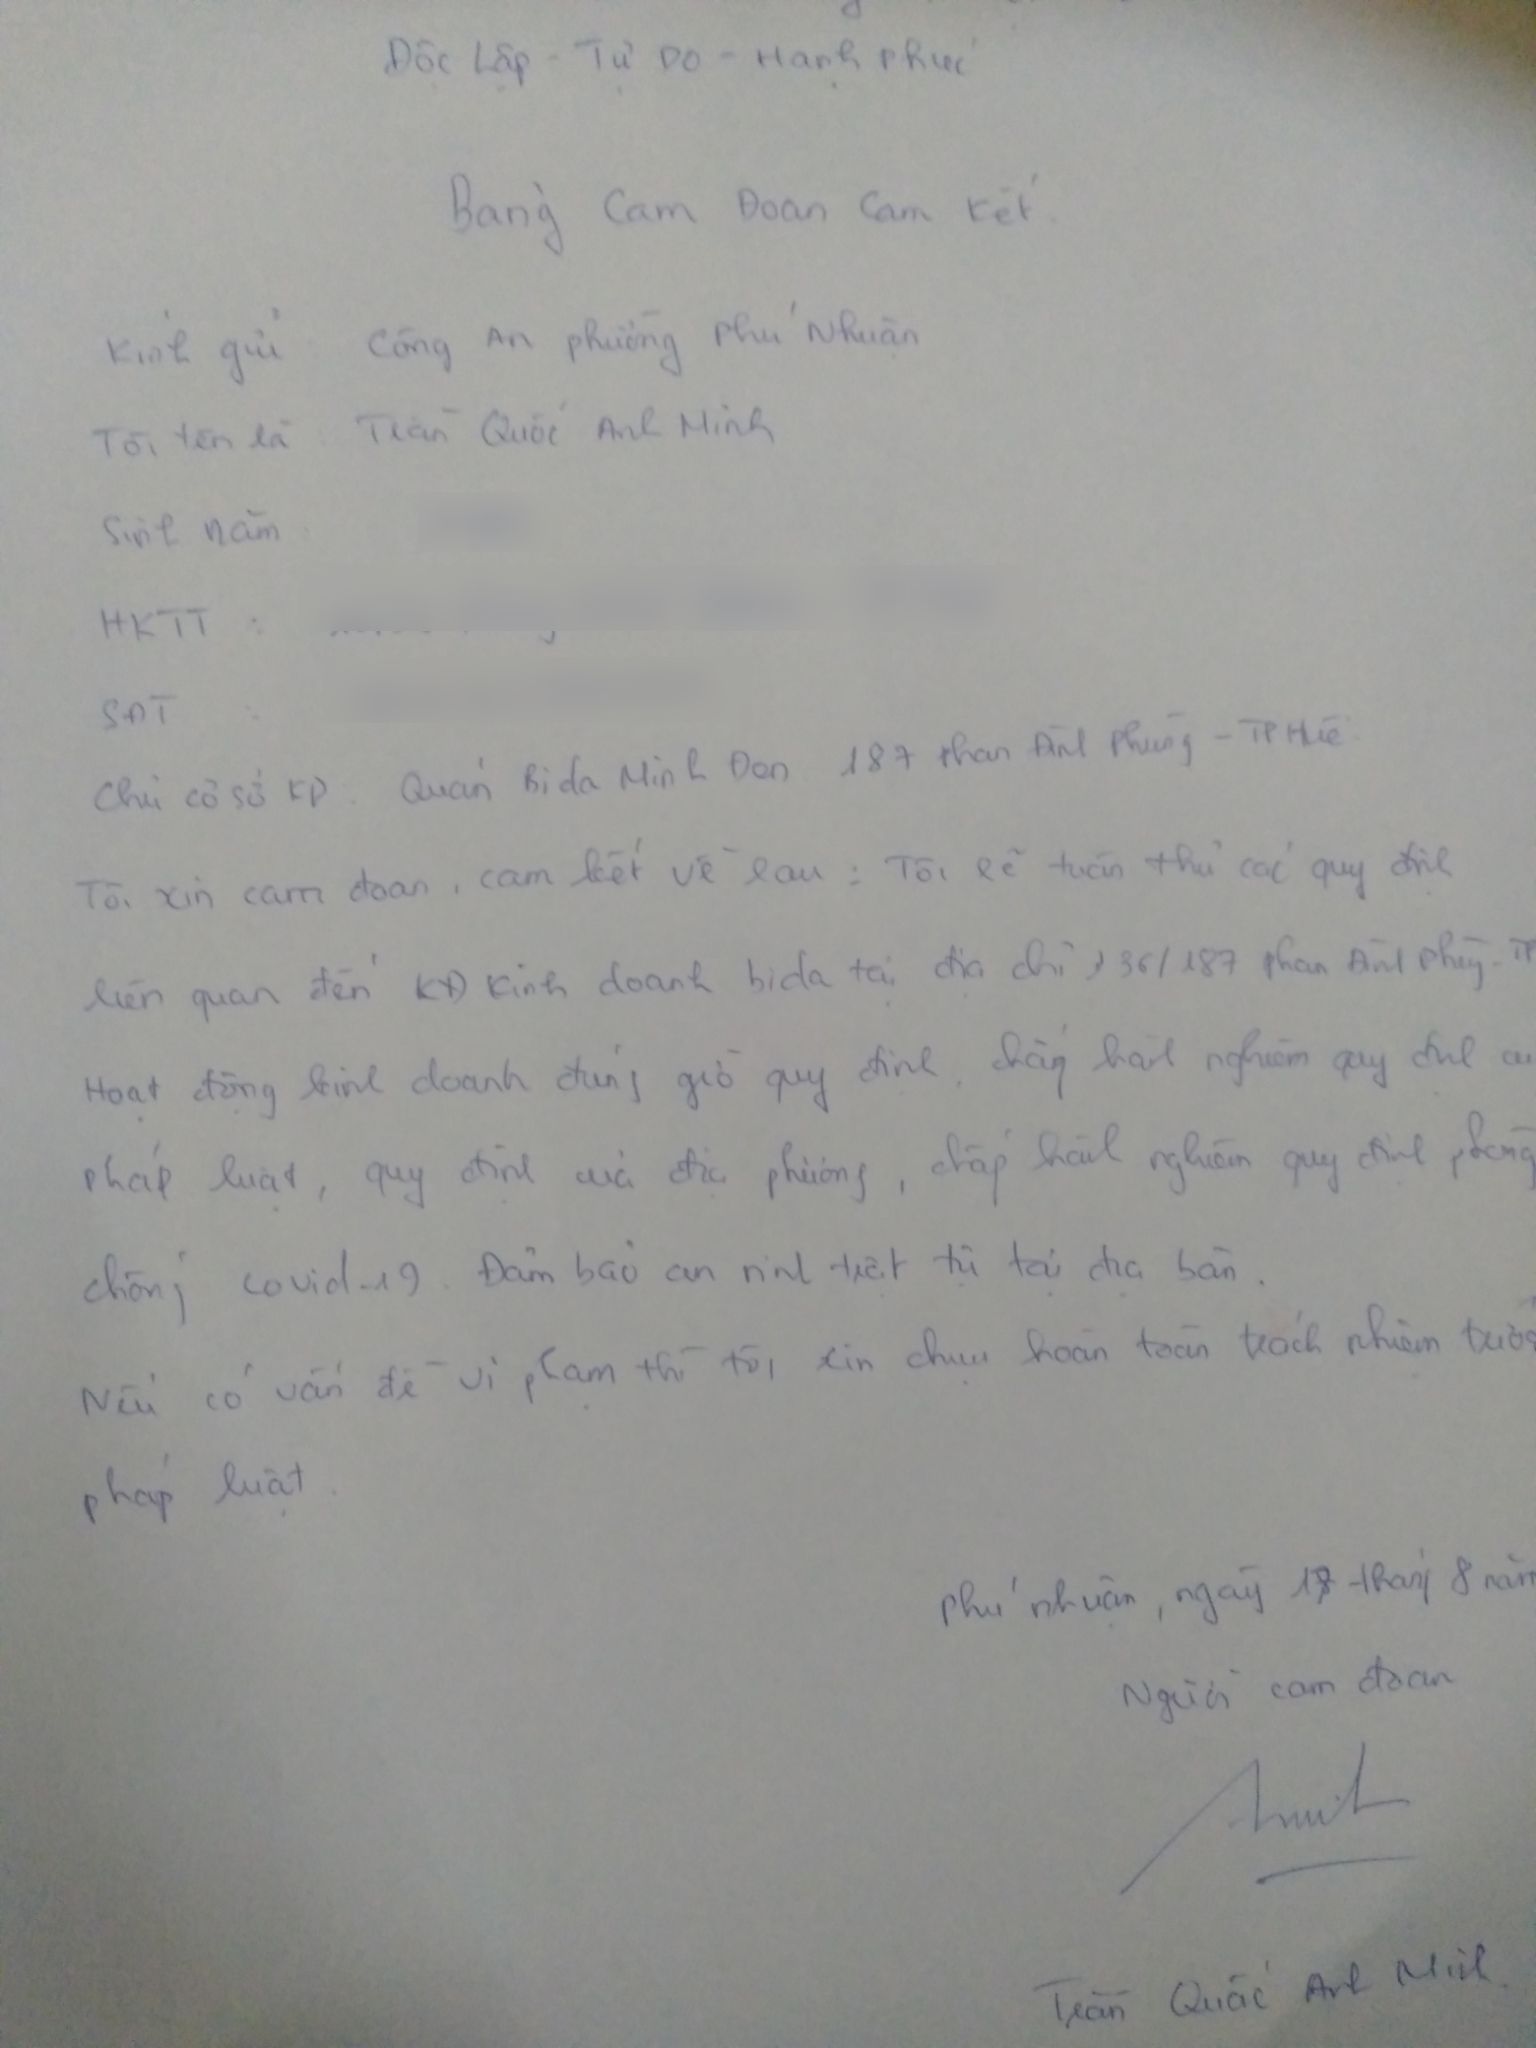 Độc Lập - Tự Do - Hạnh Phúc
Bảng Cam Đoan Cam Kết.
Kính gửi Công An phường Phú Nhuận
Tôi tên là : Trần Quốc Anh Minh
Sinh năm :
HKTT :
SĐT :
Chủ cơ sở KD. Quán Bida Minh Đon 187 Phan Đình Phùng - TP Huế.
Tôi xin cam đoan, cam kết về sau : Tôi sẽ tuân thủ các quy định
liên quan đến KD Kinh doanh bida tại địa chỉ 136/187 Phan Đình Phùng - TP
Hoạt động kinh doanh đúng giờ quy định, chấp hành nghiêm quy định
pháp luật, quy định của địa phương, chấp hành nghiêm quy định phòng
chống covid-19. Đảm bảo an ninh trật tự tại địa bàn.
Nếu có vấn đề vi phạm thì tôi xin chịu hoàn toàn trách nhiệm trước
pháp luật.
Phú nhuận, ngày tháng 8 năm
Người cam đoan
Trần Quốc Anh Minh